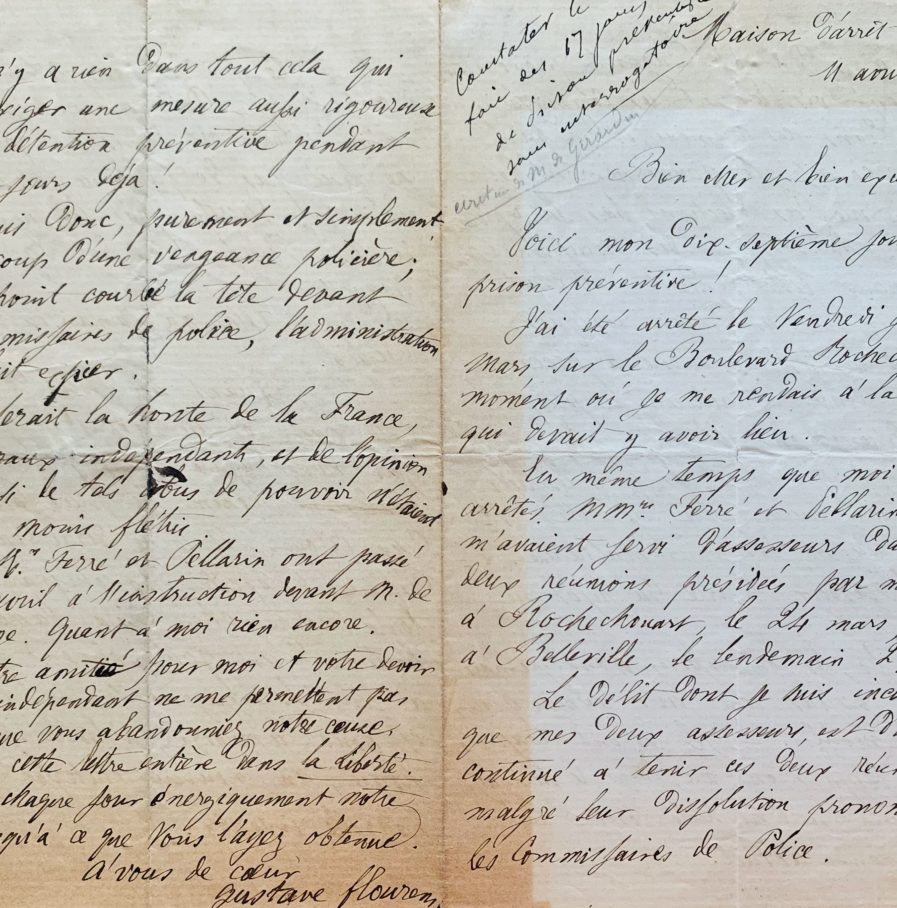 Constater le
fait des 17 jours
de prison préventive
sans interrogatoire
écriture de M. de Girardin
Maison d'arrêt
11 avri
Bien cher et bien
Voici mon dix-septième jou
prison préventive !
J'ai été arrêté le Vendredi
Mars sur le Boulevard Rochec
moment où je me rendais à la
qui devait y avoir lieu.
En même temps que moi
arrêtés MM.rs Ferré et Pellarin
m'avaient servi d'assesseurs da
deux réunions présidées par m
à Rochechouart, le 24 mars
à Belleville, le lendemain 2
Le délit dont je suis incu
que mes deux assesseurs, est d
continué à tenir ces deux réun
malgré leur dissolution pronon
les Commissaires de Police.
n'y a rien dans tout cela qui
exiger une mesure aussi rigoureuse
détention préventive pendant
jours déjà !
uis donc, purement et simplement
coup d'une vengeance policière;
point courbé la tête devant
missaires de police, l'administration
ait expier.
serait la honte de la France,
naux indépendants, et de l'opinion
si de tels abus de pouvoir n'étaient
moins flétris
M.rs Ferré et Pellarin ont passé
avril à l'instruction devant M. de
Quant à moi rien encore.
tre amitié pour moi et votre devoir
indépendant ne me permettent pas
que vous abandonniez notre cause
cette lettre entière dans la liberté.
chaque jour énergiquement notre
squ'à ce que vous l'ayez obtenue.
à vous de cœur
Gustave Flourens